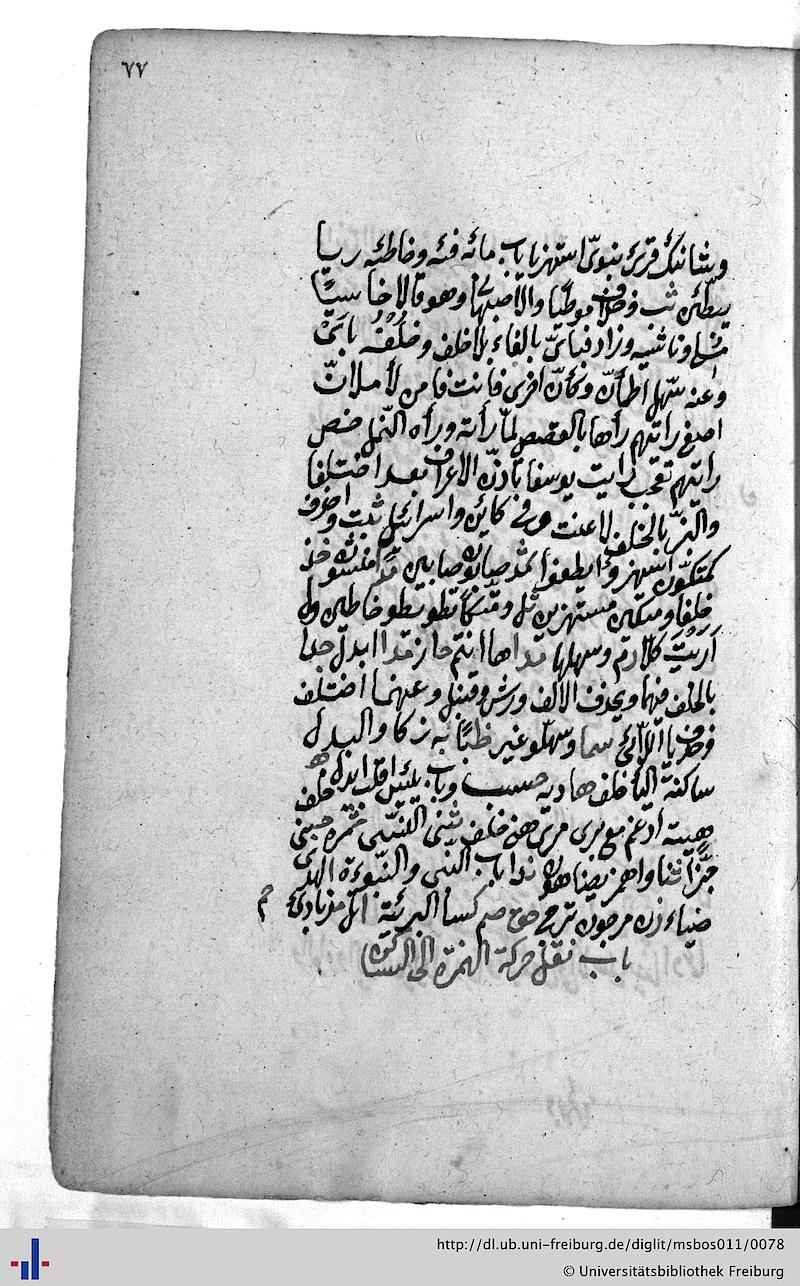 ٧٧
وشانئك قرئ نبوّى استهزيا باب مائه فئه وخاطئه ريا
يبطئن ثب وخلاف موطيا والاصبهانى وهو قالا خاسيا
ملى وناشيه وزاد فبأىّ بالفاء بلا خلف وخلفه باىّ
وعنه سهل اطمأنّ وكأنّ اخرى فانت فامن لأملانّ
اصفى رايتهم رأها بالقصص لمّا رأته ورأه النّمل خص
رايتهم تعجب رايت يوسفا تاذّن الاعراف بعد اختلفا
والبزّ بالخلف لاعنت وفى كائن واسرائيل ثبت واحذف
كمتكون استهزؤا يطفوا ثمد صابون صابين مدا منشون خد
خلفا ومتكين مستهزين ثل ومتكا تطو يطو خاطين ول
اريت كلا رم وسهلها مدا ها انتم حاز مدا ابدل جدا
بالخلف فيهما ويحذف الالف ورش وقنبل وعنهما اختلف
وحذف يا اللّائى سما وسهلو غير ظبا به زكا والبدل
ساكنة اليا خلف هاديه حسب وباب يئيس اقلب ابدل خلف هب
هيئة ادغم مع برى مرى هنى خلف ثنى النسى ثمره جنى
جزّا ثنا واهمز يضاهون ندا باب النّبى والنّبوءة الهدى
ضياء زن مرجون ترجى حق صم كسا البرئة اتل مز بادئ حم
باب نقل حركة الهمزة الى الساكن
http://dl.ub.uni-freiburg.de/diglit/msbos011/0078
© Universitätsbibliothek Freiburg